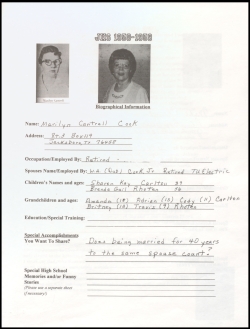 JHS 1956-1958
Biographical Information
Name: Marilyn Cantrell Cook
Address: Rt. 2 Box 119
Jacksboro Tx 76458
Occupation/Employed By: Retired
Spouses Name/Employed By: W.A. (Bob) Cook Jr. Retired TU Electric
Children's Names and ages: Sharon Kay Carlton 39
Brenda Gail Rhoten 36
Grandchildren and ages: Amanda (19) Adrian (16) Cody (11) Carlton
Britney (12) Travis (9) Rhoten
Education/Special Training:
Special Accomplishments
You Want To Share? Does being married for 40 years
to the same spouse count?
Special High School
Memories and/or Funny
Stories
(Please use a separate sheet
if necessary)